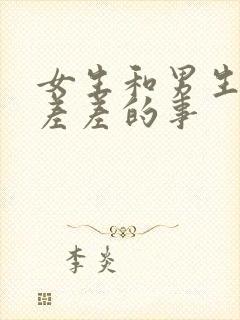 女生和男生
差差的事
李炎